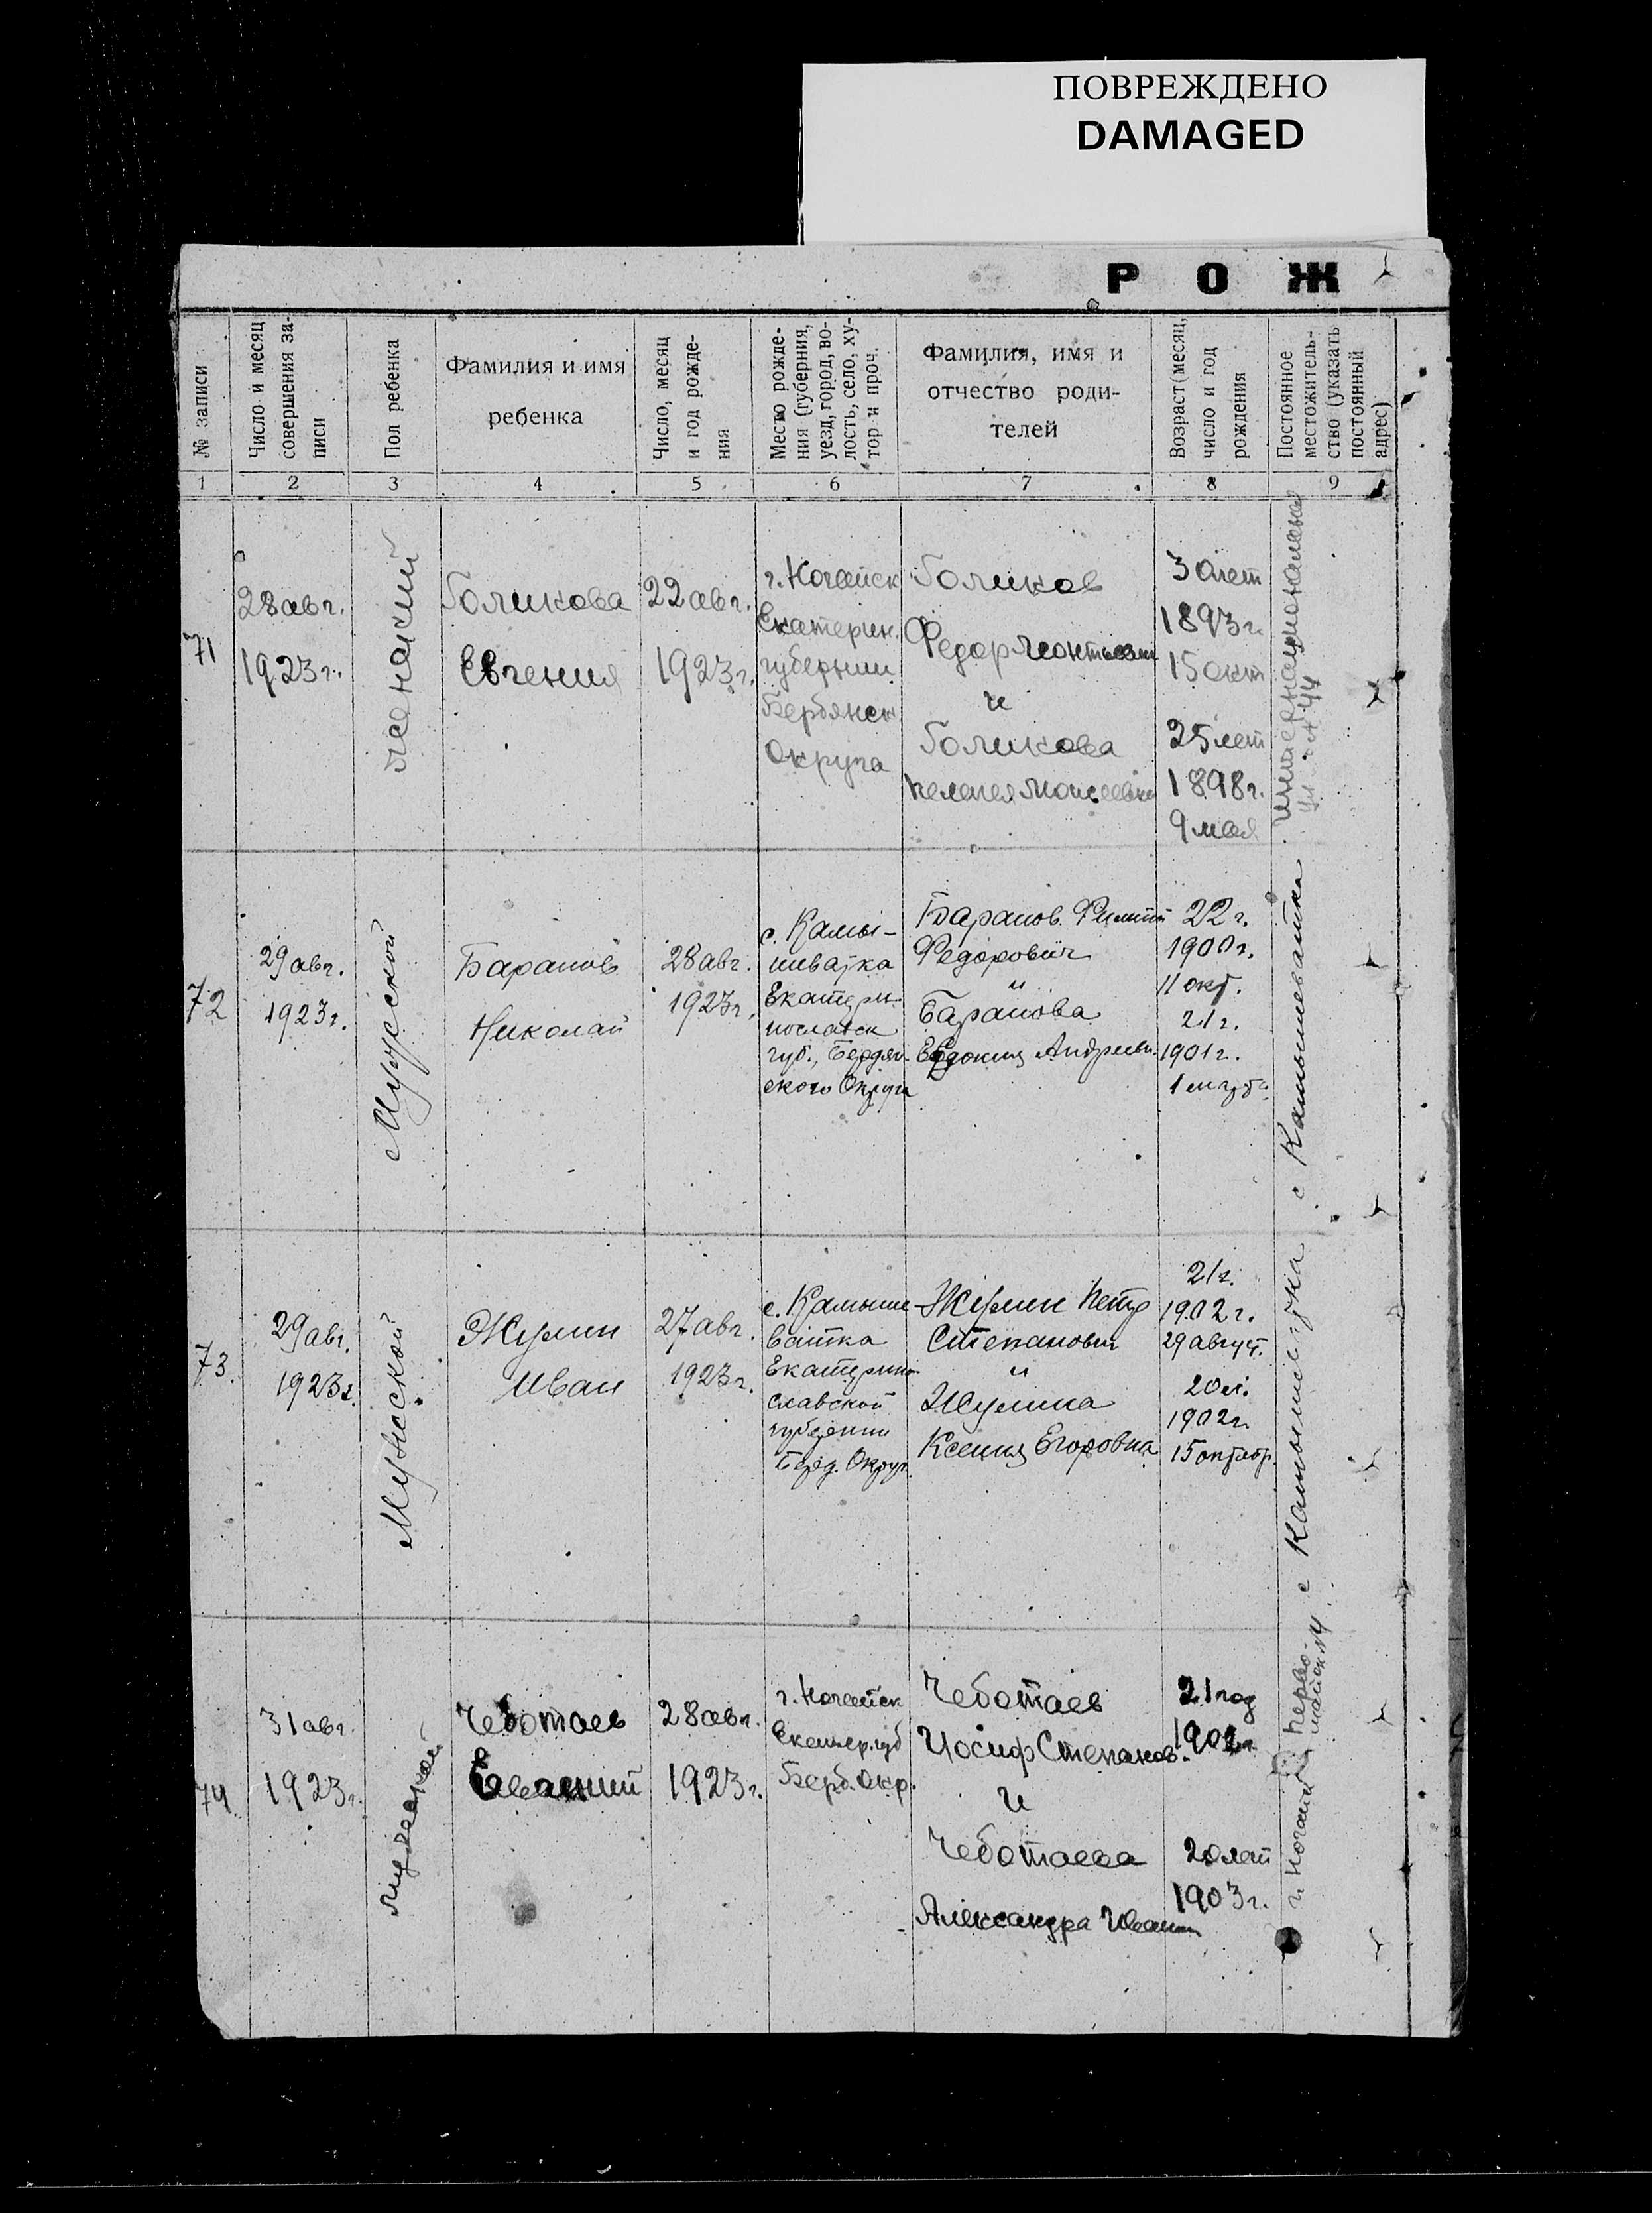 ПОВРЕЖДЕНО
DAMAGED
Р О Ж
№ записи
Число и месяц
совершения за-
писи
Пол ребенка
Фамилия и имя
ребенка
Число, месяц
и год рожде-
ния
Место рожде-
ния (губерния,
уезд, город, во-
лость, село, ху-
тор и проч.
Фамилия, имя и
отчество роди-
телей
Возраст (месяц,
число и год
рождения
Постоянное
местожитель-
ство (указать
постоянный
адрес)
1 2 3 4 5 6 7 8 9
71
28 авг.
1923 г.
женский
Голикова
Евгения
22 авг.
1923 г.
г. Ногайск
Екатерин.
губернии
Бердянск
Округа
Голиков
Федор Леонтьевич
и
Голикова
Пелагея Моисеевна
30 лет
1893 г.
15 окт
25 лет
1898 г.
9 мая
Интернациональная
ул. № 44
72
29 авг.
1923 г.
Мужской
Баранов
Николай
28 авг.
1923 г.
с. Камы-
шватка
Екатери-
нославск
губ., Бердян-
ского Округа
Баранов Филипп
Федорович
и
Баранова
Евдокия Андреевн.
22 г.
1900 г.
11 окт.
21 г.
1901 г.
1 марта
с Камышеватка
73.
29 авг.
1923 г.
Мужской
Жулин
Иван
27 авг.
1923 г.
с. Камыше
ватка
Екатерино
славской
губернии
Берд. Округ.
Жулин Петр
Степанович
и
Жулина
Ксения Егоровна
21 г.
1902 г.
29 август.
20 л.
1902 г.
15 октябр.
с Камышеватка
74.
31 авг.
1923 г.
мужской
Чеботаев
28 авг.
1923 г.
г. Ногайск
Екатер. губ
Берд. Окр.
Чеботаев
Иосиф Степанов.
и
Чеботаева
Александра Иван
21 год
1902 г.
20 лет
1903 г.
г. Ногайск Перво-
майск.